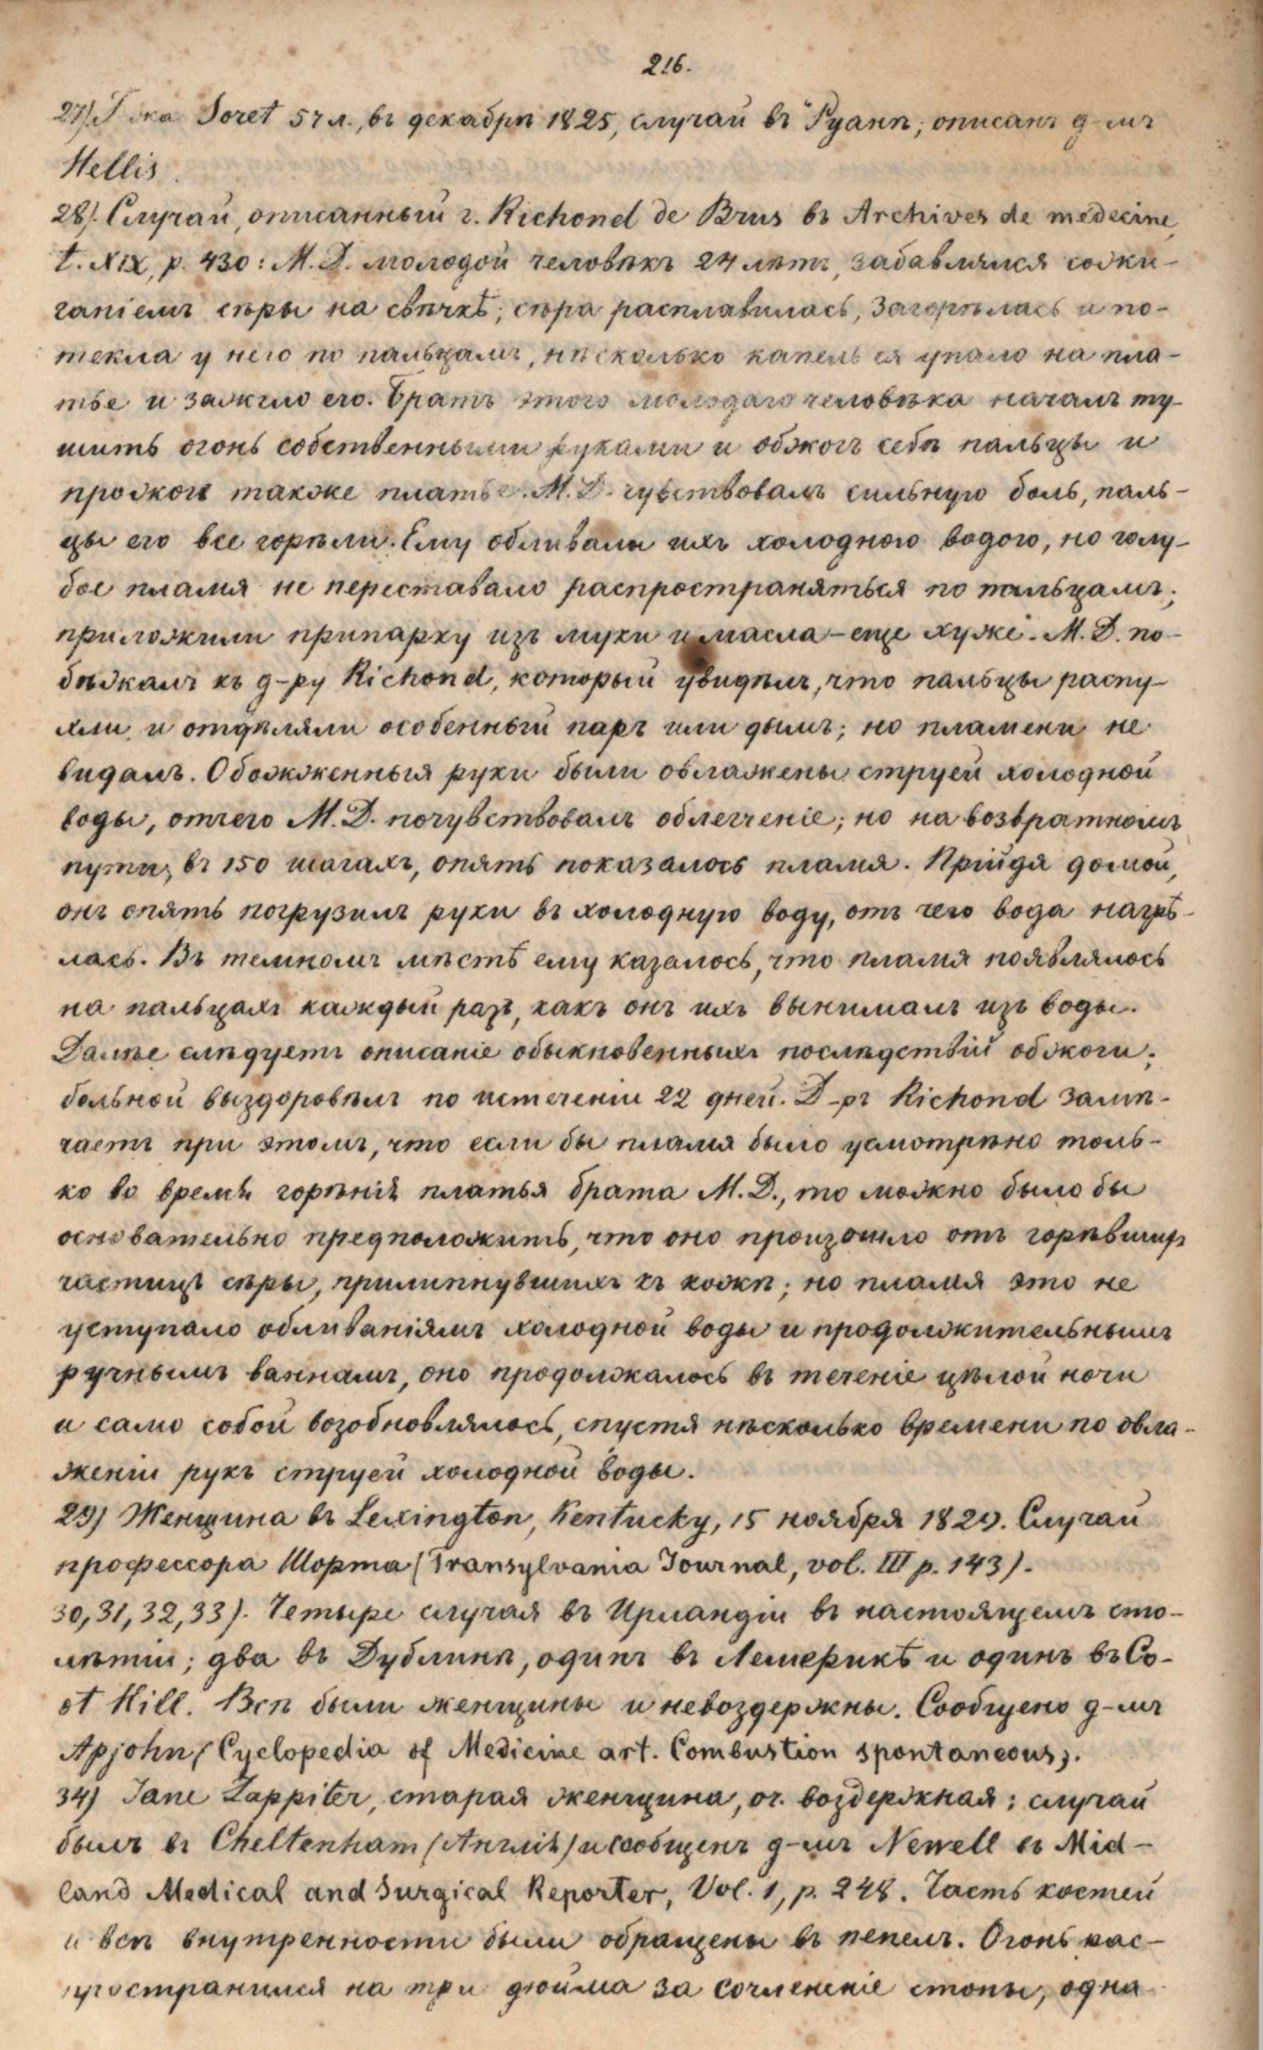 216.
27). Г-жа Soret 57 л., въ декабрѣ 1825, случай въ Руанѣ; описанъ д-мъ
Hellis.
28). Случай, описанный г. Richond de Brus въ Archives de medecine,
t. XIX, p. 430: М. Д. молодой человѣкъ 24 лѣтъ, забавлялся сожи-
ганіемъ сѣры на свѣчкѣ; сѣра расплавилась, загорѣлась и по-
текла у него по пальцамъ, нѣсколько капель ея упало на пла-
тье и зажгло его. Братъ этого молодаго человѣка началъ ту-
шить огонь собственными руками и обжогъ себѣ пальцы и
прожогъ также платье. М. Д. чувствовалъ сильную боль, паль-
цы его все горѣли. Ему обливали ихъ холодною водою, но голу-
бое пламя не переставало распространяться по пальцамъ;
приложили припарку изъ муки и масла – еще хуже. М. Д. по-
бѣжалъ къ д-ру Richond, который увидѣлъ, что пальцы распу-
хли и отдѣляли особенный паръ или дымъ; но пламени не
видалъ. Обожженныя руки были овлажены струей холодной
воды, отчего М. Д. почувствовалъ облегченіе; но на возвратномъ
пути, въ 150 шагахъ, опять показалось пламя. Прійдя домой,
онъ опять погрузилъ руки въ холодную воду, отъ чего вода нагрѣ-
лась. Въ темномъ мѣстѣ ему казалось, что пламя появлялось
на пальцахъ каждый разъ, какъ онъ ихъ вынималъ изъ воды.
Далѣе слѣдуетъ описаніе обыкновенныхъ послѣдствій обжоги;
больной выздоровѣлъ по истеченіи 22 дней. Д-ръ Richond замѣ-
чаетъ при этомъ, что если бы пламя было усмотрѣно толь-
ко во время горѣнія платья брата М. Д., то можно было бы
основательно предположить, что оно произошло отъ горѣвшихъ
частицъ сѣры, прилипнувшихъ къ кожѣ; но пламя это не
уступало обливаніямъ холодной воды и продолжительнымъ
ручнымъ ваннамъ, оно продолжалось въ теченіе цѣлой ночи
и само собой возобновлялось, спустя нѣсколько времени по овла-
женіи рукъ струей холодной воды.
29) Женщина въ Lexington, Kentucky, 15 ноября 1829. Случай
профессора Шорта (Transylvania Journal, vol. III p. 143).
30, 31, 32, 33). Четыре случая въ Ирландіи въ настоящемъ сто-
лѣтіи; два въ Дублинѣ, одинъ въ Лемерикѣ и одинъ въ Co-
ot Hill. Всѣ были женщины и невоздержны. Сообщено д-мъ
Apjohn (Cyclopedia of Medicine art. Combustion spontaneous).
34) Jane Zappiter, старая женщина, оч. воздержная; случай
былъ въ Cheltenham (Англія) и сообщенъ д-мъ Newell въ Mid-
land Medical and Surgical Reporter, Vol. 1, p. 248. Часть костей
и всѣ внутренности были обращены въ пепелъ. Огонь рас-
пространился на три дюйма за сочлененіе стопы, одна